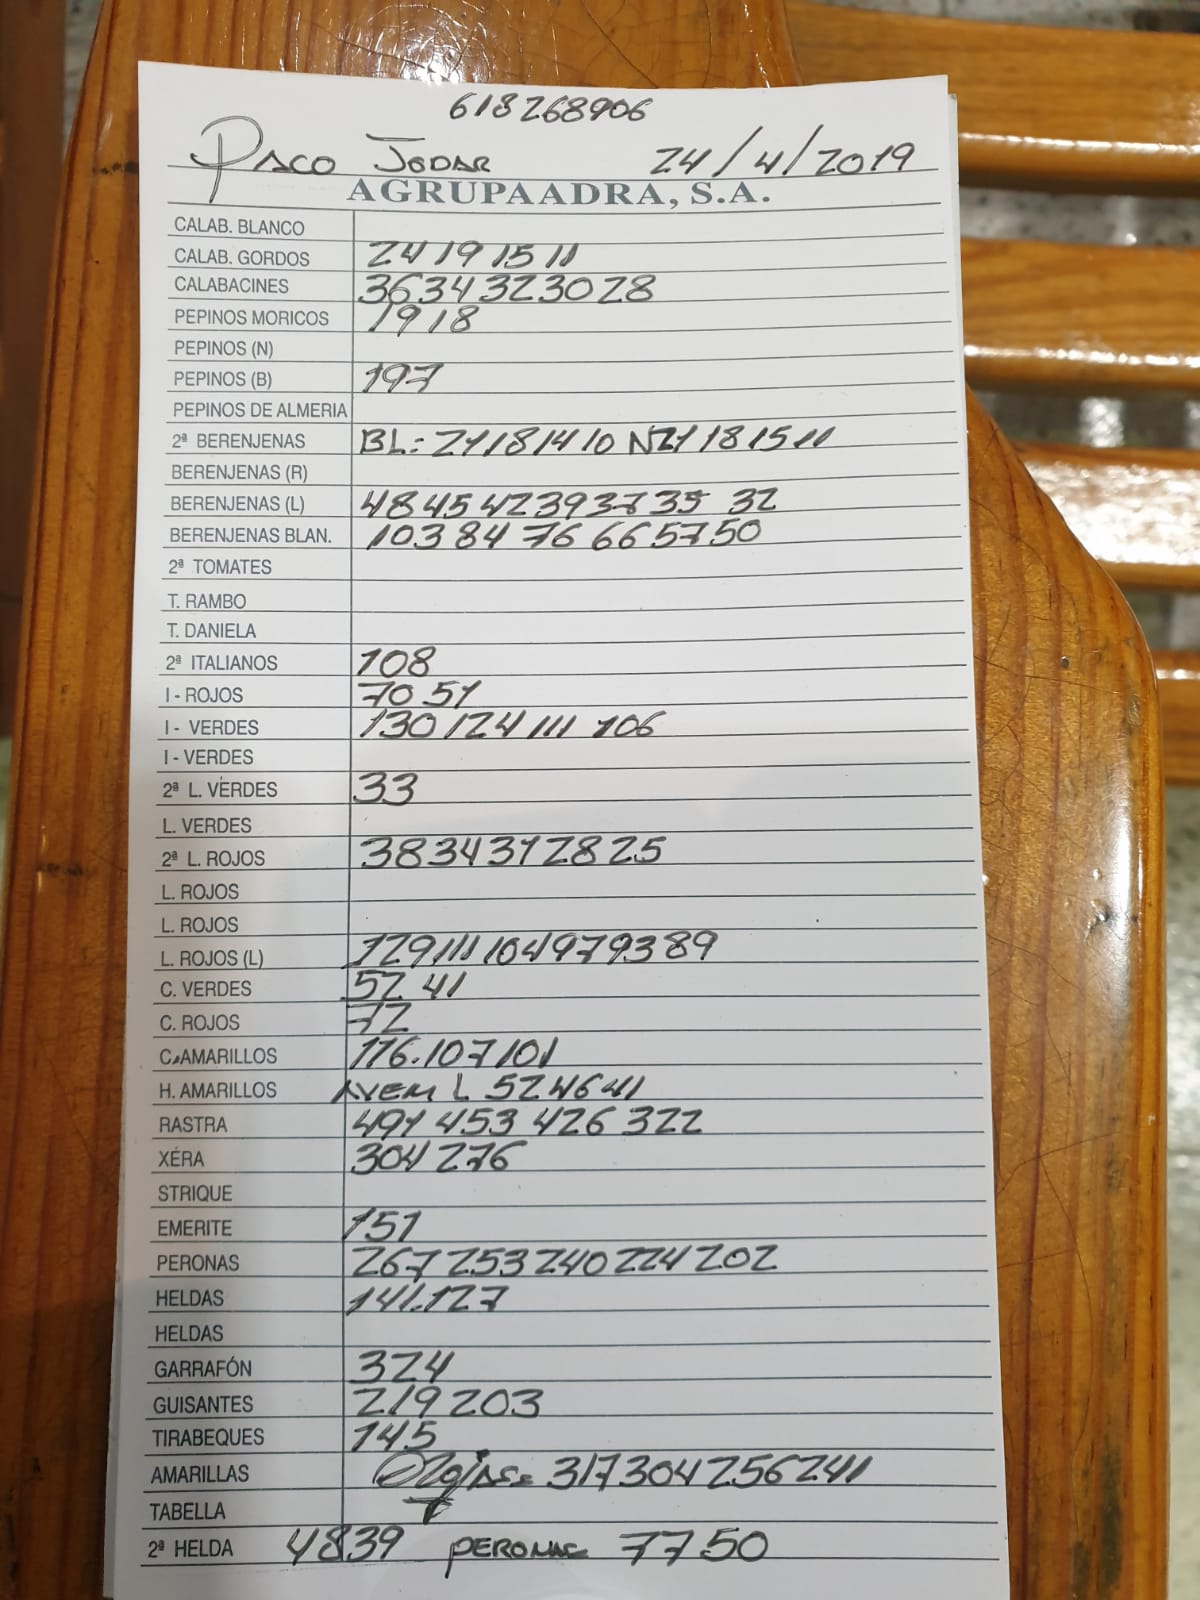 618268906
PACO JODAR 24/4/2019
AGRUPAADRA, S.A.
CALAB. BLANCO
CALAB. GORDOS 24 19 15 11
CALABACINES 36 34 32 30 28
PEPINOS MORICOS 19 18
PEPINOS (N)
PEPINOS (B) 197
PEPINOS DE ALMERIA
2ª BERENJENAS BL: 21 18 14 10 N21 18 15 11
BERENJENAS (R)
BERENJENAS (L) 48 45 42 39 37 35 32
BERENJENAS BLAN. 103 84 76 66 57 50
2ª TOMATES
T. RAMBO
T. DANIELA
2ª ITALIANOS 108
I - ROJOS 70 51
I - VERDES 130 124 111 106
I - VERDES
2ª L. VERDES 33
L. VERDES
2ª L. ROJOS 38 34 31 28 25
L. ROJOS
L. ROJOS
L. ROJOS (L) 129 111 104 97 93 89
C. VERDES 52 41
C. ROJOS 72
C. AMARILLOS 116.107 101
H. AMARILLOS AVEM L 52 46 41
RASTRA 491 453 426 322
XÉRA 304 276
STRIQUE
EMERITE 151
PERONAS 267 253 240 224 202
HELDAS 141.127
HELDAS
GARRAFÓN 324
GUISANTES 219 203
TIRABEQUES 145
AMARILLAS 317 304 256 241
TABELLA
2ª HELDA 48 39 PERONAS 77 50